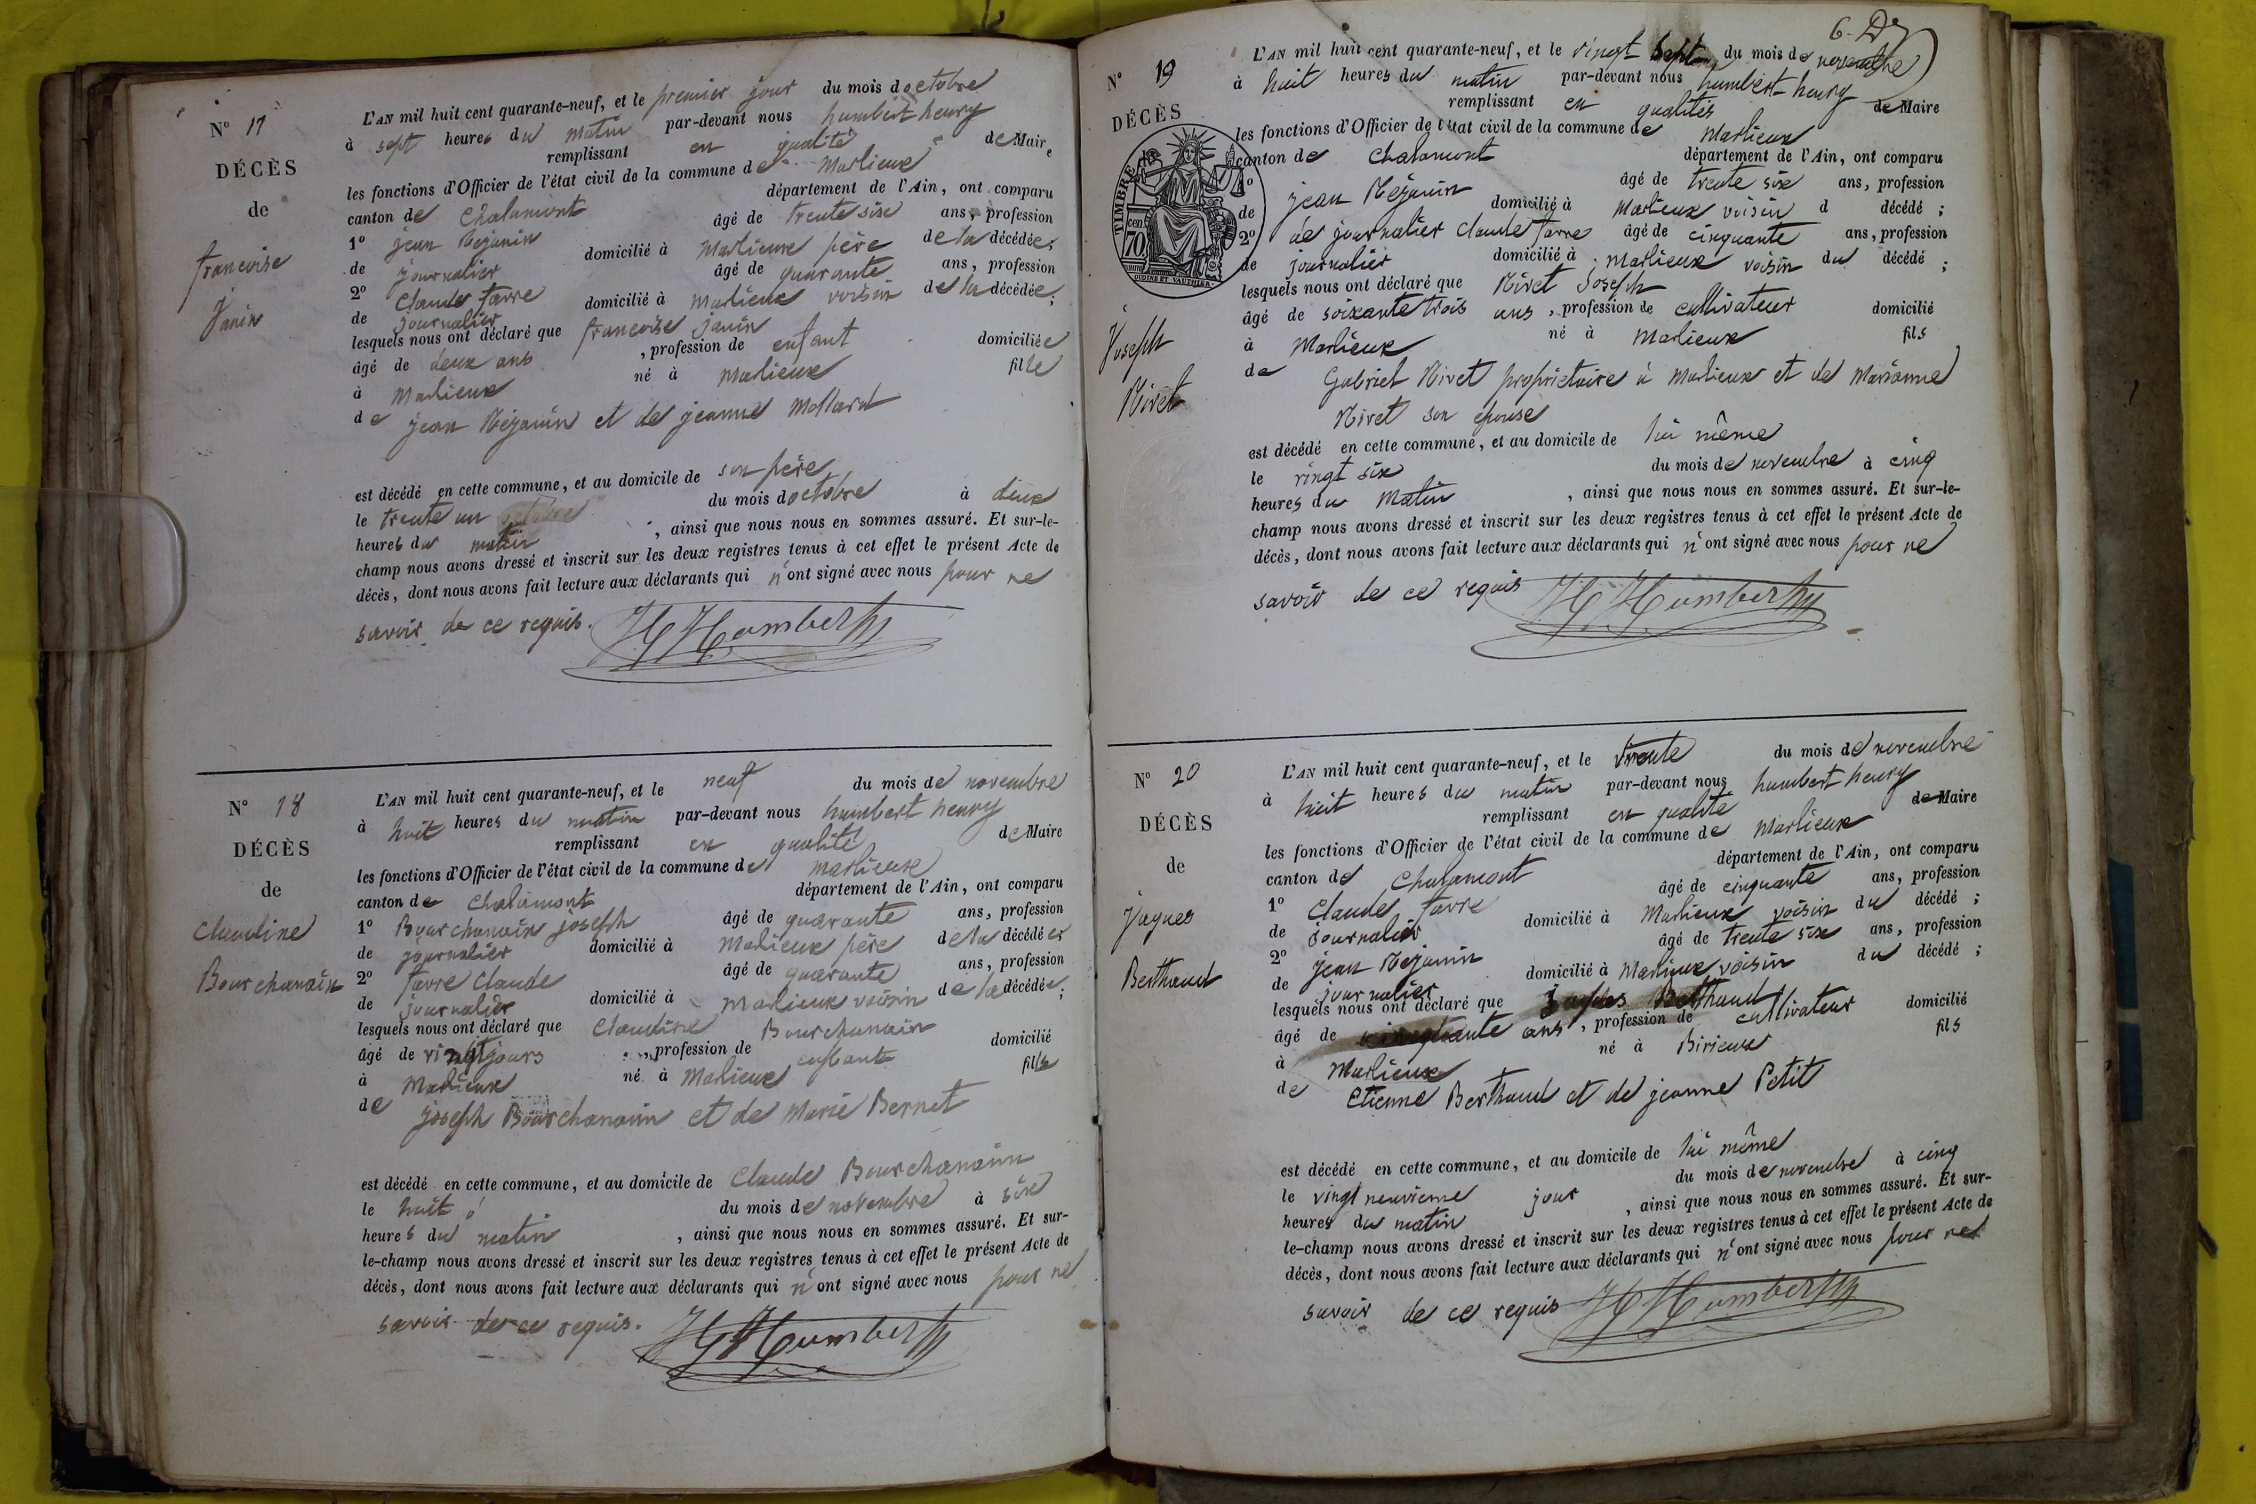 N° 17
DÉCÈS
de
francoise
Janin
L'AN mil huit cent quarante-neuf, et le premier jour du mois doctobre
à sept heures du matin par-devant nous humbert henry
remplissant en qualité de Maire
les fonctions d'Officier de l'état civil de la commune de Marlieux
canton de Chalamont département de l'Ain, ont comparu
1° jean Rejanin âgé de trente six ans, profession
de journalier domicilié à Marlieux père de la décédée;
2° Claude favre âgé de quarante ans, profession
de journalier domicilié à Marlieux voisin de la décédée;
lesquels nous ont déclaré que francoise janin
âgé de deux ans, profession de enfant domiciliée
à Marlieux né à Marlieux fille
de jean Rejanin et de jeanne Mollard
est décédé en cette commune, et au domicile de son père
le trente un du mois doctobre à deux
heures du matin, ainsi que nous nous en sommes assuré. Et sur-le-
champ nous avons dressé et inscrit sur les deux registres tenus à cet effet le présent Acte de
décès, dont nous avons fait lecture aux déclarants qui n'ont signé avec nous pour ne
savoir de ce requis. H Humbert
N° 18
DÉCÈS
de
Claudine
Bourchanain
L'AN mil huit cent quarante-neuf, et le neuf du mois de novembre
à huit heures du matin par-devant nous humbert henry
remplissant en qualité de Maire
les fonctions d'Officier de l'état civil de la commune de Marlieux
canton de Chalamont département de l'Ain, ont comparu
1° Bourchanain joseph âgé de quarante ans, profession
de journalier domicilié à Marlieux père de la décédée;
2° favre Claude âgé de quarante ans, profession
de journalier domicilié à Marlieux voisin de la décédée;
lesquels nous ont déclaré que Claudine Bourchanain
âgé de vingt jours, profession de enfant domicilié
à Marlieux né à Marlieux fille
de joseph Bourchanain et de Marie Bernet
est décédé en cette commune, et au domicile de Claude Bourchanain
le huit du mois de novembre à six
heures du matin, ainsi que nous nous en sommes assuré. Et sur-
le-champ nous avons dressé et inscrit sur les deux registres tenus à cet effet le présent Acte de
décès, dont nous avons fait lecture aux déclarants qui n'ont signé avec nous pour ne
savoir de ce requis. H Humbert
N° 19
DÉCÈS
TIMBRE
70
OUDINÉ ET VAUTHIER
de
Joseph
Nivet
L'AN mil huit cent quarante-neuf, et le vingt sept du mois de novembre
à huit heures du matin par-devant nous humbert henry
remplissant en qualités de Maire
les fonctions d'Officier de l'état civil de la commune de Marlieux
canton de Chalamont département de l'Ain, ont comparu
1° jean Rejanin âgé de trente six ans, profession
de journalier domicilié à Marlieux voisin d décédé;
2° Claude favre âgé de cinquante ans, profession
de journalier domicilié à Marlieux voisin du décédé;
lesquels nous ont déclaré que Nivet Joseph
âgé de soixante trois ans, profession de cultivateur domicilié
à Marlieux né à Marlieux fils
de Gabriel Nivet proprietaire à Marlieux et de Marianne
Nivet son épouse
est décédé en cette commune, et au domicile de lui même
le vingt six du mois de novembre à cinq
heures du Matin, ainsi que nous nous en sommes assuré. Et sur-le-
champ nous avons dressé et inscrit sur les deux registres tenus à cet effet le présent Acte de
décès, dont nous avons fait lecture aux déclarants qui n'ont signé avec nous pour ne
savoir de ce requis H Humbert
N° 20
DÉCÈS
de
Jaques
Berthaud
L'AN mil huit cent quarante-neuf, et le trente du mois de novembre
à huit heures du matin par-devant nous humbert henry
remplissant en qualité de Maire
les fonctions d'Officier de l'état civil de la commune de Marlieux
canton de Chalamont département de l'Ain, ont comparu
1° Claude favre âgé de cinquante ans, profession
de journalier domicilié à Marlieux voisin du décédé;
2° jean Rejanin âgé de trente six ans, profession
de journalier domicilié à Marlieux voisin du décédé;
lesquels nous ont déclaré que jaques Berthaud
âgé de cinquante ans, profession de cultivateur domicilié
à Marlieux né à Birieux fils
de Etienne Berthaud et de jeanne Petit
est décédé en cette commune, et au domicile de lui même
le vingt neuvieme jour du mois de novembre à cinq
heures du matin, ainsi que nous nous en sommes assuré. Et sur-
le-champ nous avons dressé et inscrit sur les deux registres tenus à cet effet le présent Acte de
décès, dont nous avons fait lecture aux déclarants qui n'ont signé avec nous pour ne
savoir de ce requis H Humbert